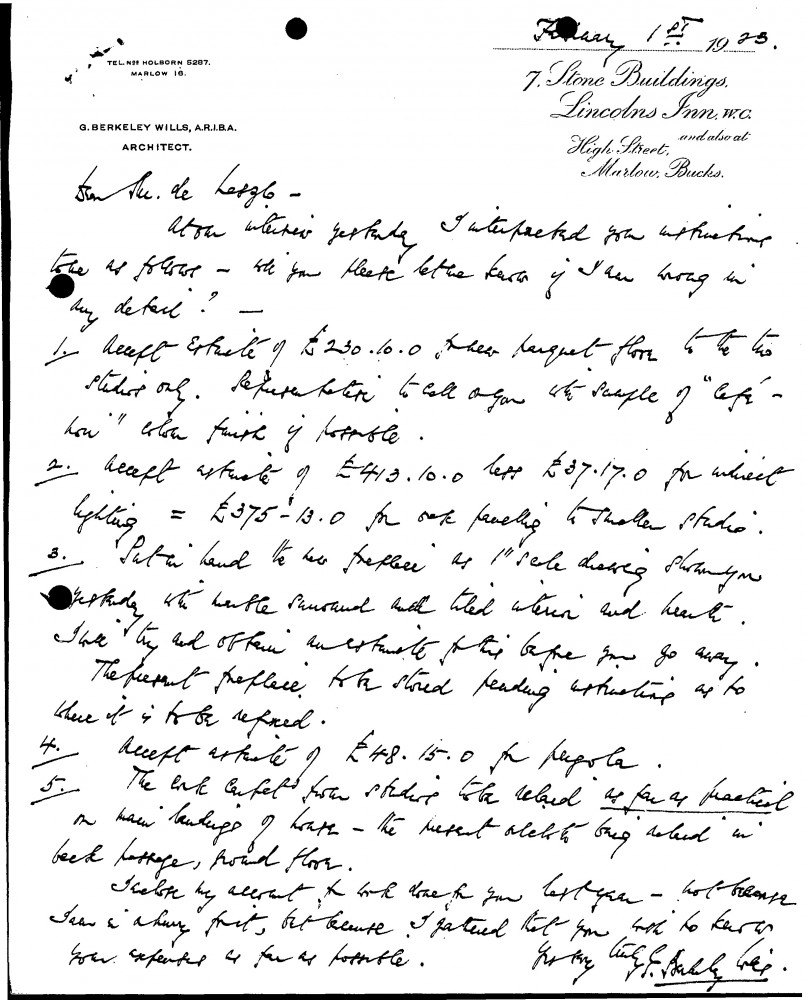 February 1st 1923.
TEL. Nos HOLBORN 5287.
MARLOW 16.
7, Stone Buildings,
Lincolns Inn, W.C.
and also at
High Street,
Marlow, Bucks.
G. BERKELEY WILLS, A.R.I.B.A.
ARCHITECT.
Dear Mr. de Laszlo –
At our interview yesterday I interpreted your instructions
to be as follows – will you please let me know if I am wrong in
any detail? –
1. Accept Estimate of £230.10.0 for new parquet floor to the two
studios only. Representative to call on you with sample of "Café-
noir" colour finish if possible.
2. Accept estimate of £413.10.0 less £37.17.0 for indirect
lighting = £375-13.0 for oak panelling to smaller studio.
3. Put in hand the new fireplace as 1" scale drawing shown you
yesterday with marble surround and tiled interior and hearth.
I will try and obtain an estimate for this before you go away.
The present fireplace to be stored pending instructions as to
where it is to be refixed.
4. Accept estimate of £48.15.0 for pergola.
5. The cork carpet from studios to be relaid as far as practical
on main landings of house – the present being relaid in
back passage, ground floor.
I enclose my account for work done for you last year – not because
I am in a hurry for it, but because I gathered that you wish to know
your expenses as far as possible.
Yrs very truly G. Berkeley Wills.